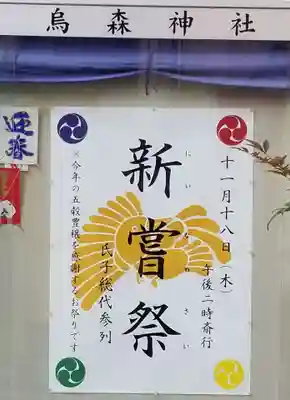 烏森神社
迎春
十一月十八日（木）
午後二時斎行
新嘗祭
にいなめさい
氏子総代参列
※今年の五穀豊穣を感謝するお祭りです